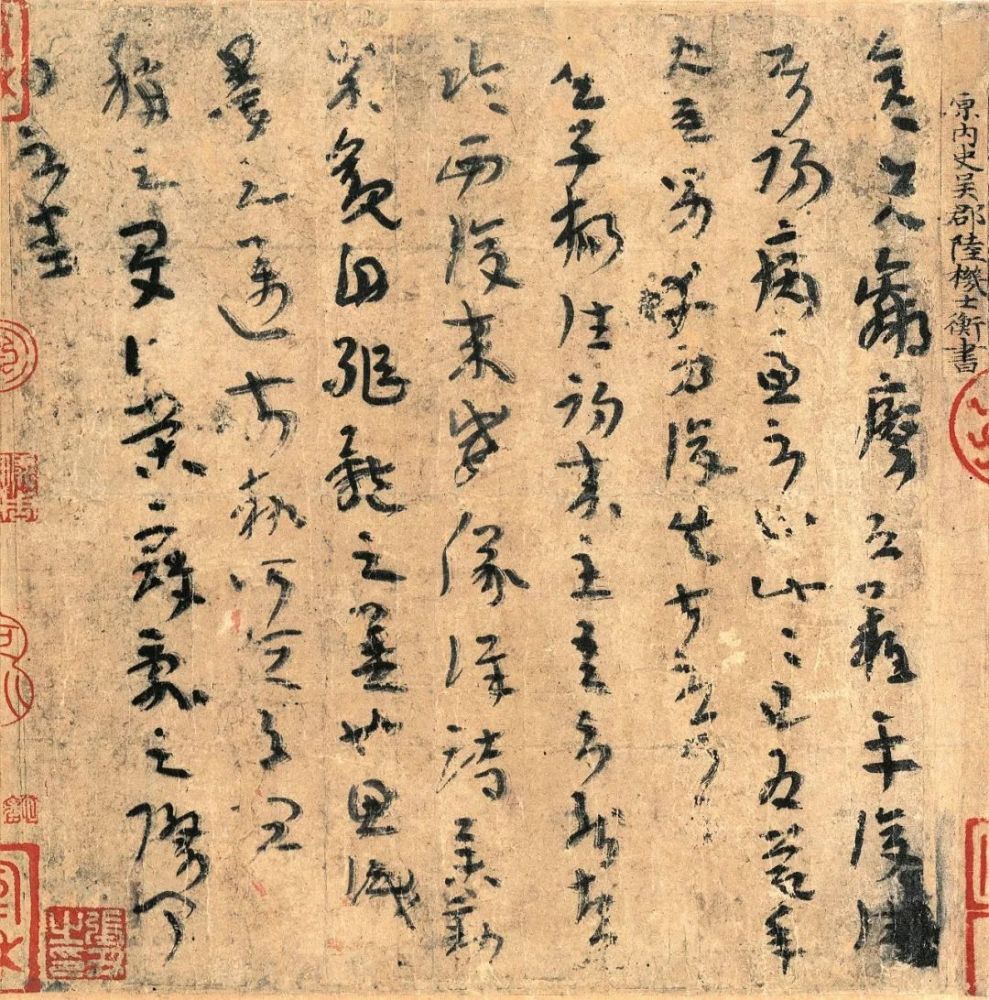 原内史吳郡陸機士衡書
彦先羸瘵恐難平復往屬
初病慮不止此此已為慶承
使男幸為復失前憂耳
子楊往初來主吾不能盡
臨西復來威儀詳跱舉動
成觀自軀體之美也思識
量之邁前執所恒有宜
稱之夏伯榮寇亂之際聞
問不悉
張丑之印